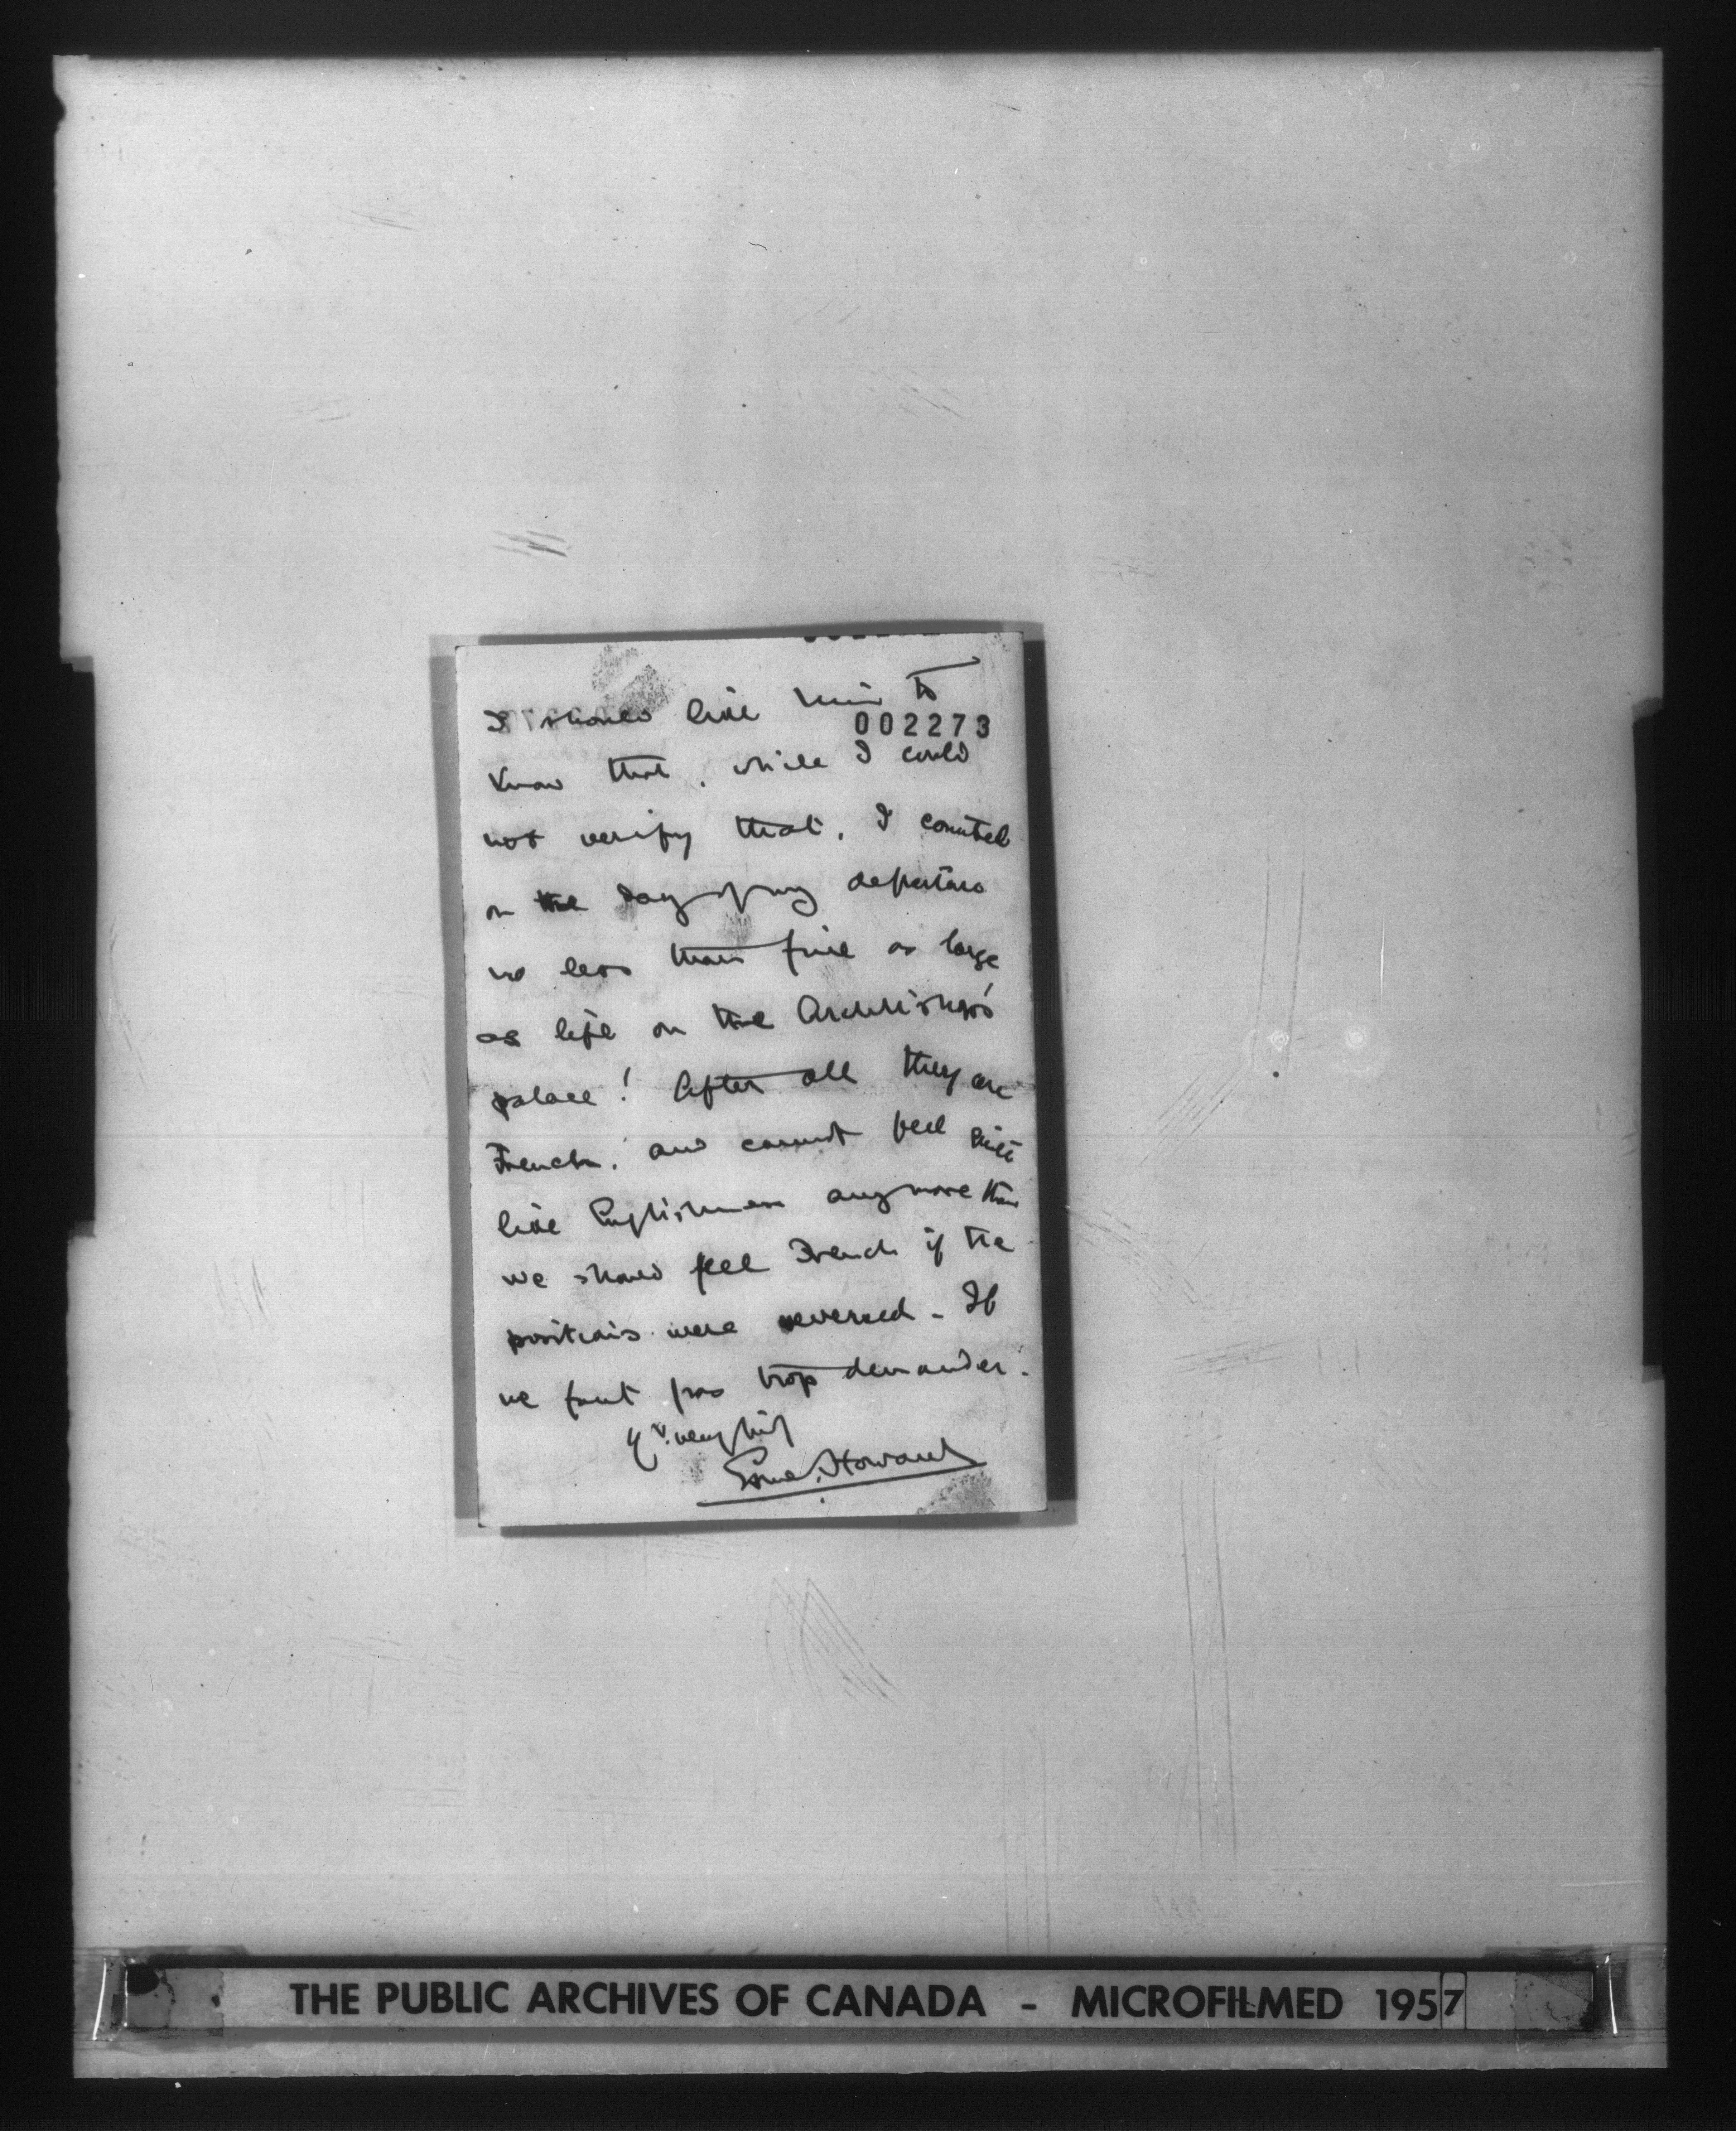 I should like him to
002273
know that, while I could
not verify that, I counted
on the day of my departure
no less than five as large
as life on the Archbishop's
palace! After all they are
French, and cannot feel quite
like Englishmen any more than
we should feel French if the
positions were reversed - Il
ne faut pas trop demander.
Yrs. very
Esme Howard
THE PUBLIC ARCHIVES OF CANADA - MICROFILMED 1957